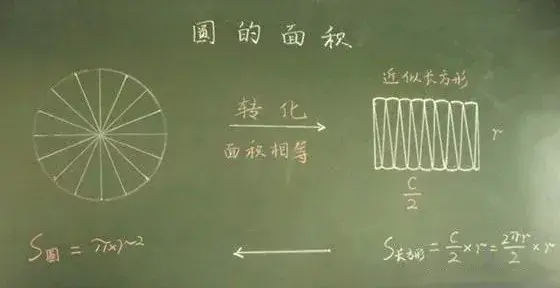 圆的面积
近似长方形
转化
面积相等
r
C/2
S圆 = π×r²
S长方形 = C/2 × r = 2πr/2 × r